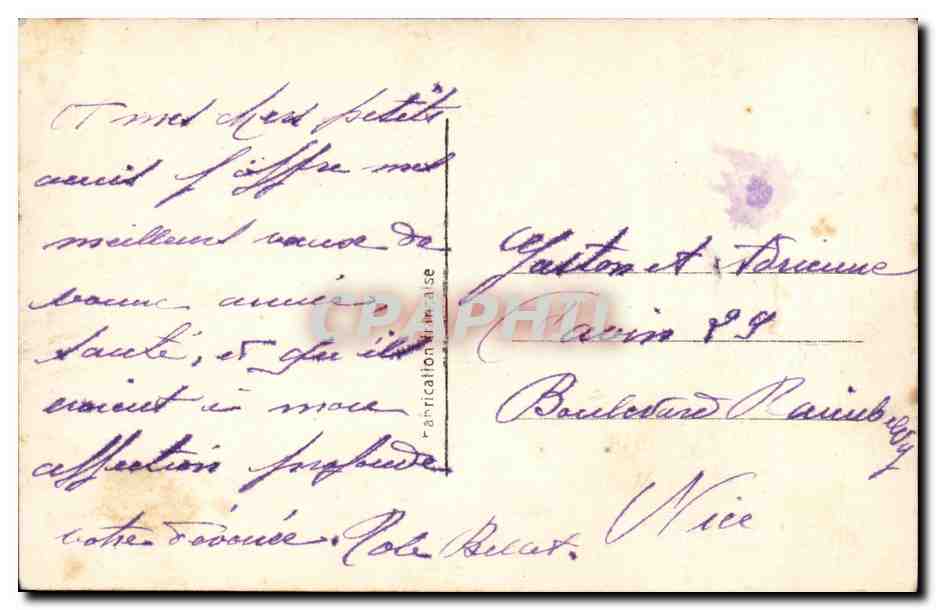 Et mes chers petits
amis j'offre mes
meilleurs vœux de
bonne année
santé, et qu'ils
croient à mon
affection profonde
votre dévouée.
Fabrication française
CPAPHIL
Gaston et Adrienne
89
Boulevard Raimbaldy
Nice